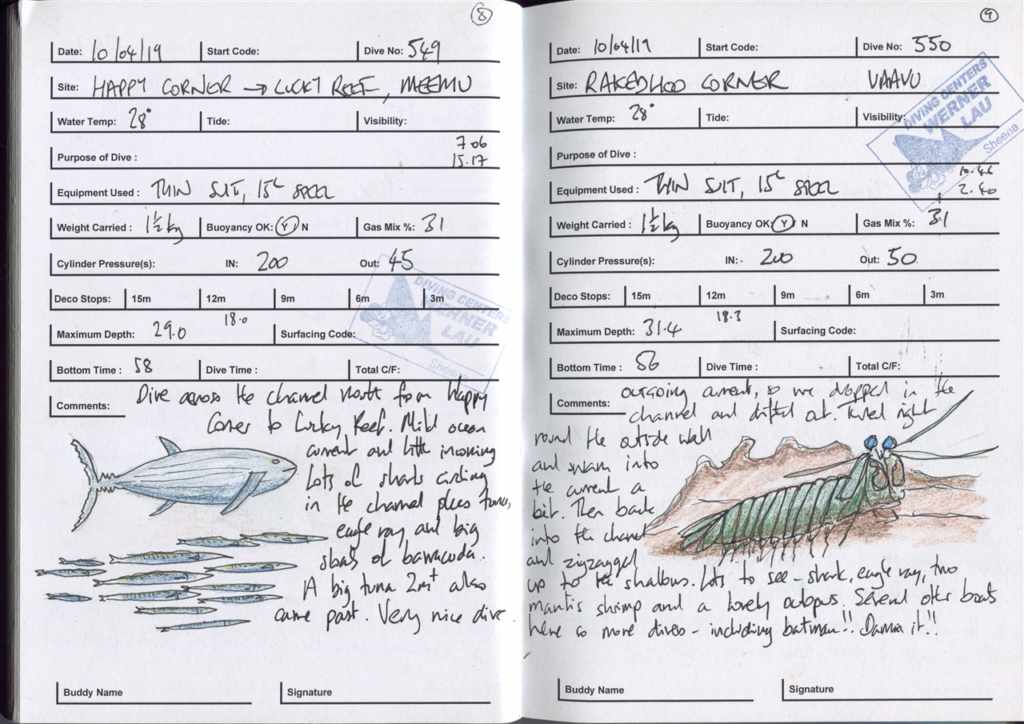 8
Date: 10/04/19 Start Code: Dive No: 549
Site: HAPPY CORNER → LUCKY REEF, MEEMU
Water Temp: 28° Tide: Visibility:
7.06
Purpose of Dive : 15.17
Equipment Used : THIN SUIT, 15L STEEL
Weight Carried : 1½ kg Buoyancy OK: Y N Gas Mix %: 31
Cylinder Pressure(s): IN: 200 Out: 45
Deco Stops: 15m 12m 9m 6m 3m
18.0
Maximum Depth: 29.0 Surfacing Code:
Bottom Time : 58 Dive Time : Total C/F:
DIVING CENTERS
WERNER
LAU
Sheena
Comments: Dive across the channel north from Happy
Corner to Lucky Reef. Mild ocean
current and little incoming
Lots of sharks circling
in the channel plus tuna,
eagle ray and big
shoals of barracuda.
A big tuna 2m+ also
came past. Very nice dive.
Buddy Name Signature
9
Date: 10/04/19 Start Code: Dive No: 550
Site: RAKEDHOO CORNER VAAVU
Water Temp: 28° Tide: Visibility:
Purpose of Dive :
10.46
Equipment Used : THIN SUIT, 15L STEEL 2.40
Weight Carried : 1½ kg Buoyancy OK: Y N Gas Mix %: 31
Cylinder Pressure(s): IN:- 200 Out: 50
Deco Stops: 15m 12m 9m 6m 3m
18.3
Maximum Depth: 31.4 Surfacing Code:
Bottom Time : 56 Dive Time : Total C/F:
DIVING CENTERS
WERNER
LAU
Sheena
Comments: outgoing current, so we dropped in the
channel and drifted out. Turned right
round the outside wall
and swam into
the current a
bit. Then back
into the channel
and zigzagged
up to the shallows. Lots to see - shark, eagle ray, two
mantis shrimp and a lovely octopus. Several other boats
here so more divers - including batman!! Damn it!!
Buddy Name Signature